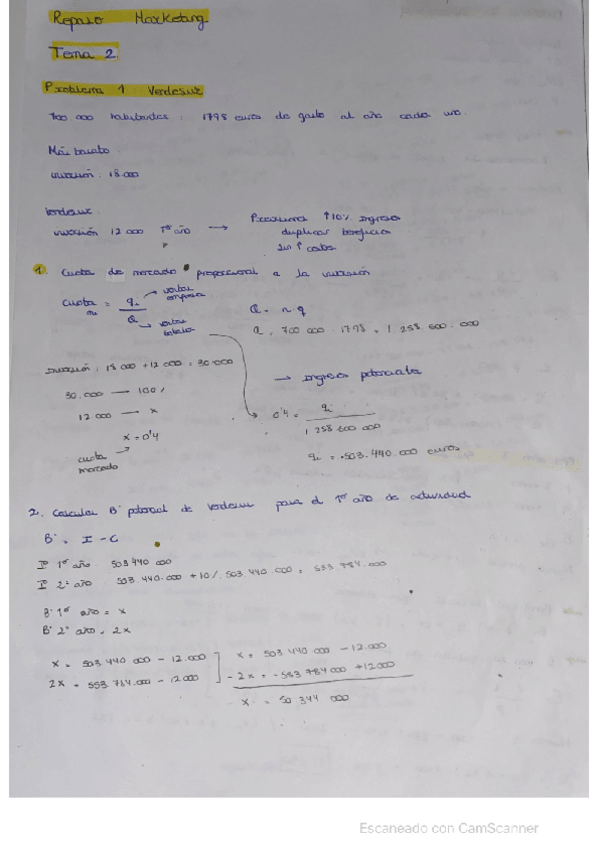 Repaso Marketing
Tema 2
Problema 1 Verdesur
700.000 habitantes : 1798 euros de gasto al año cada uno.
Más barato
inversión : 18.000
Verdesur
inversión 12 000 1er año → Presiona ↑10% ingresos
duplicar beneficio
sin ↑ costes
1. Cuota de mercado proporcional a la inversión
Cuota m = qi / Q → ventas empresa
→ ventas totales
Q = n.q
Q = 700 000 . 1798 = 1.258.600.000
Inversión : 18 000 + 12 000 = 30 000
→ Ingresos potenciales
30.000 — 100%
12.000 — x
x = 0'4
cuota mercado
0'4 = qi / 1 258 600 000
qi = 503.440.000 euros
2. Calcular Bº potencial de Verdesur para el 1er año de actividad
Bº = I - C
Iº 1er año 503 440 000
Iº 2º año 503.440.000 + 10% 503.440.000 = 553.784.000
Bº 1er año = x
Bº 2º año = 2x
x = 503 440 000 - 12.000
2x = 553.784.000 - 12000
x = 503 440 000 - 12.000
- 2x = -553 784 000 + 12000
- x = 50 344 000
Escaneado con CamScanner